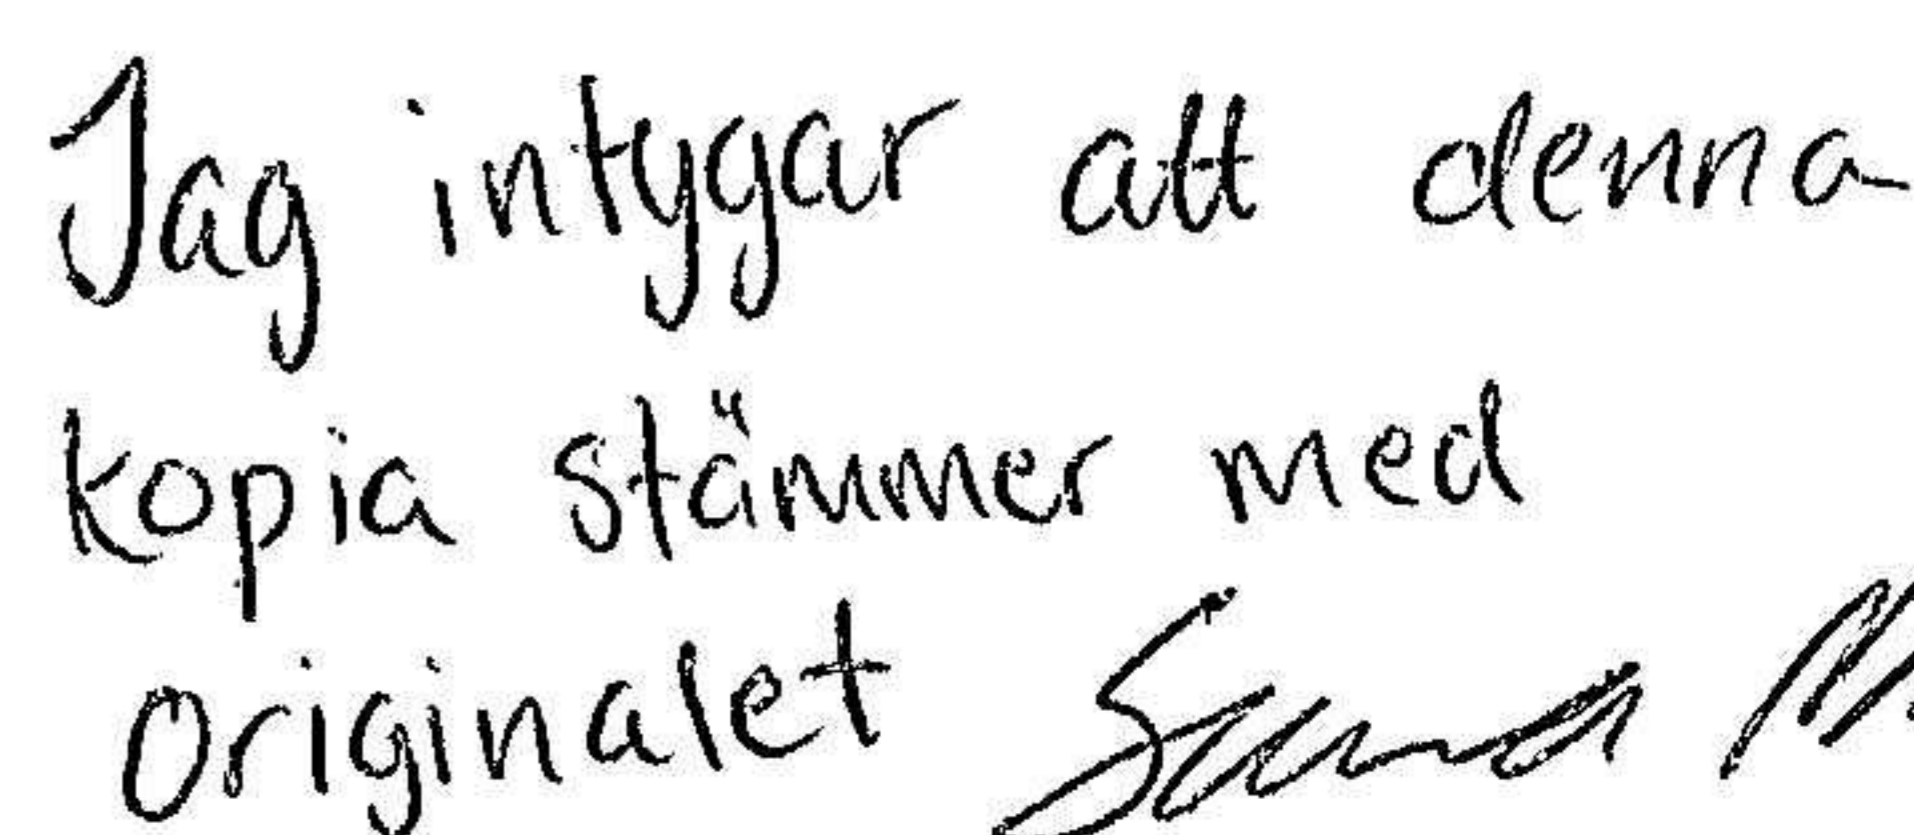 Jag intygar att denna
kopia stämmer med
originalet